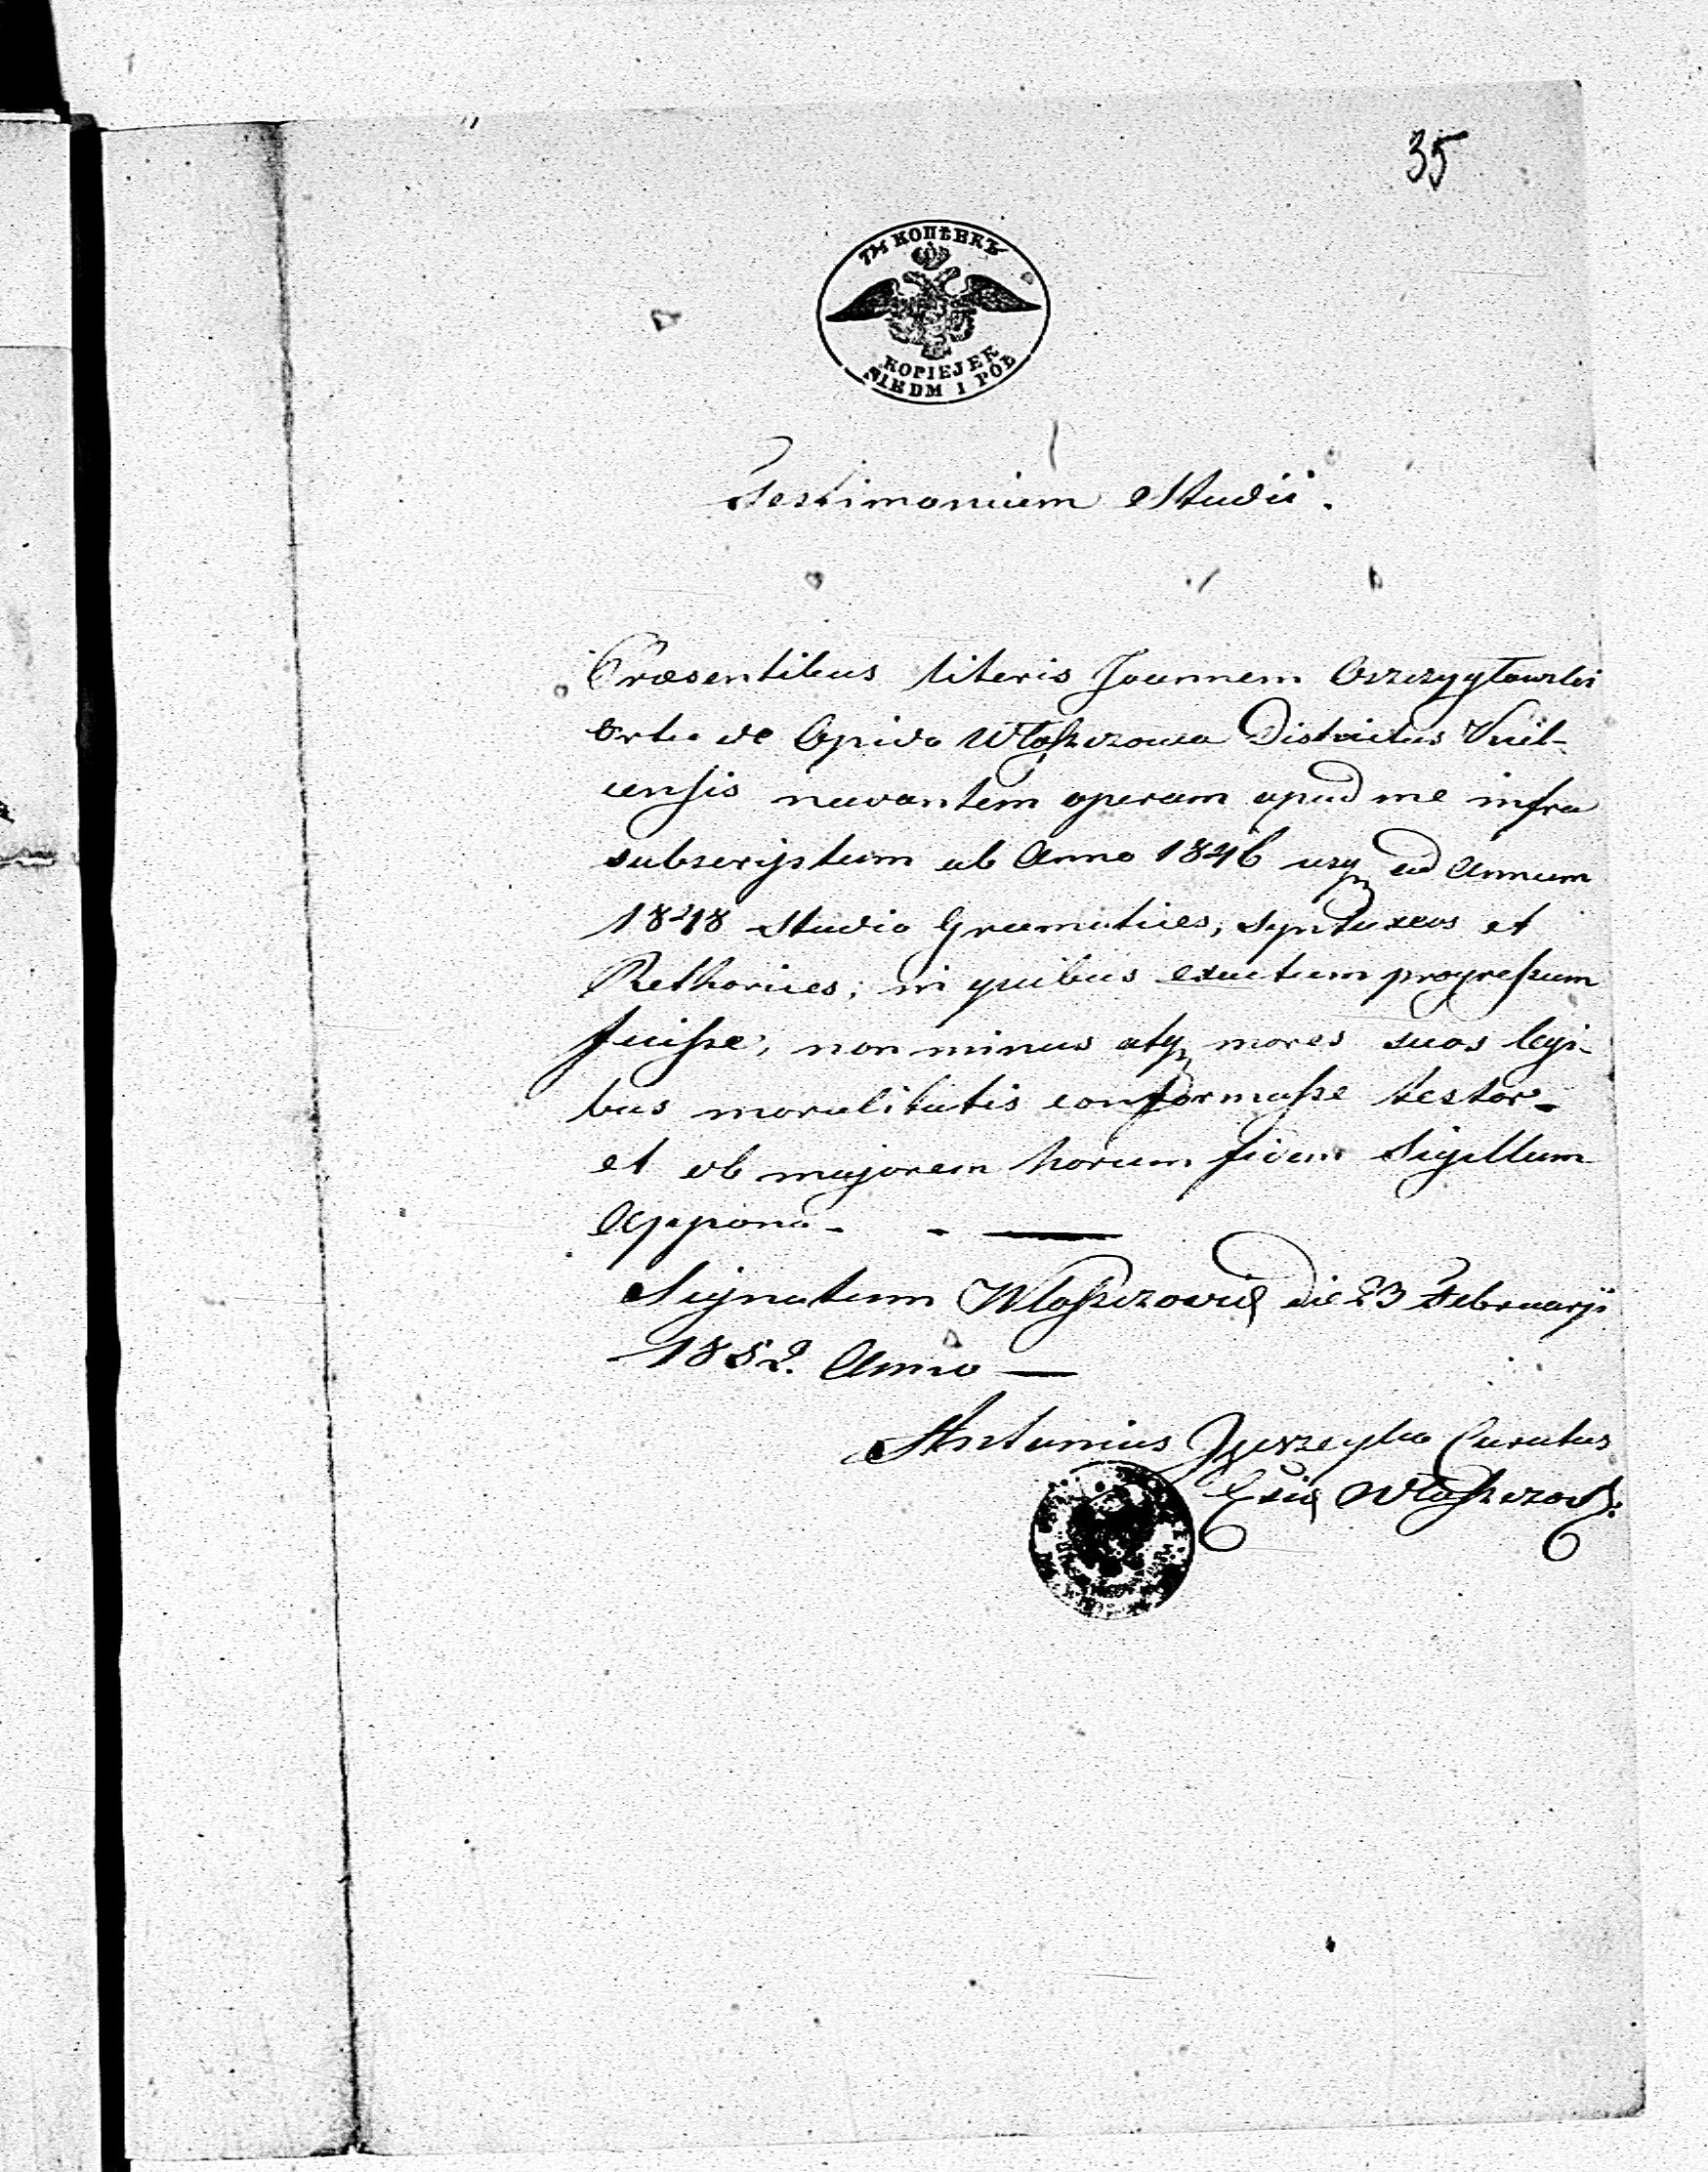 35
7½ КОПѢЕКЪ
KOPIEJEK
SIEDM I PÓŁ
Testimonium Studii.
Præsentibus literis Joannem
de Opido Włoszczowa Districtus Kiel-
censis navantem operam apud me infra
subscriptum ab Anno 1846 usq ad Annum
1848 studio Gramatices, Syntaxeos et
Rethorices; in quibus exactum progressum
fuisse, non minus atq mores suos legi-
bus moralitatis conformasse testor-
et ob majorem horum fidem Sigillum
Appono-
Signatum Włoszczowie die 23 Februarji
1852. Anno
Antonius Curatus
Włoszczow.